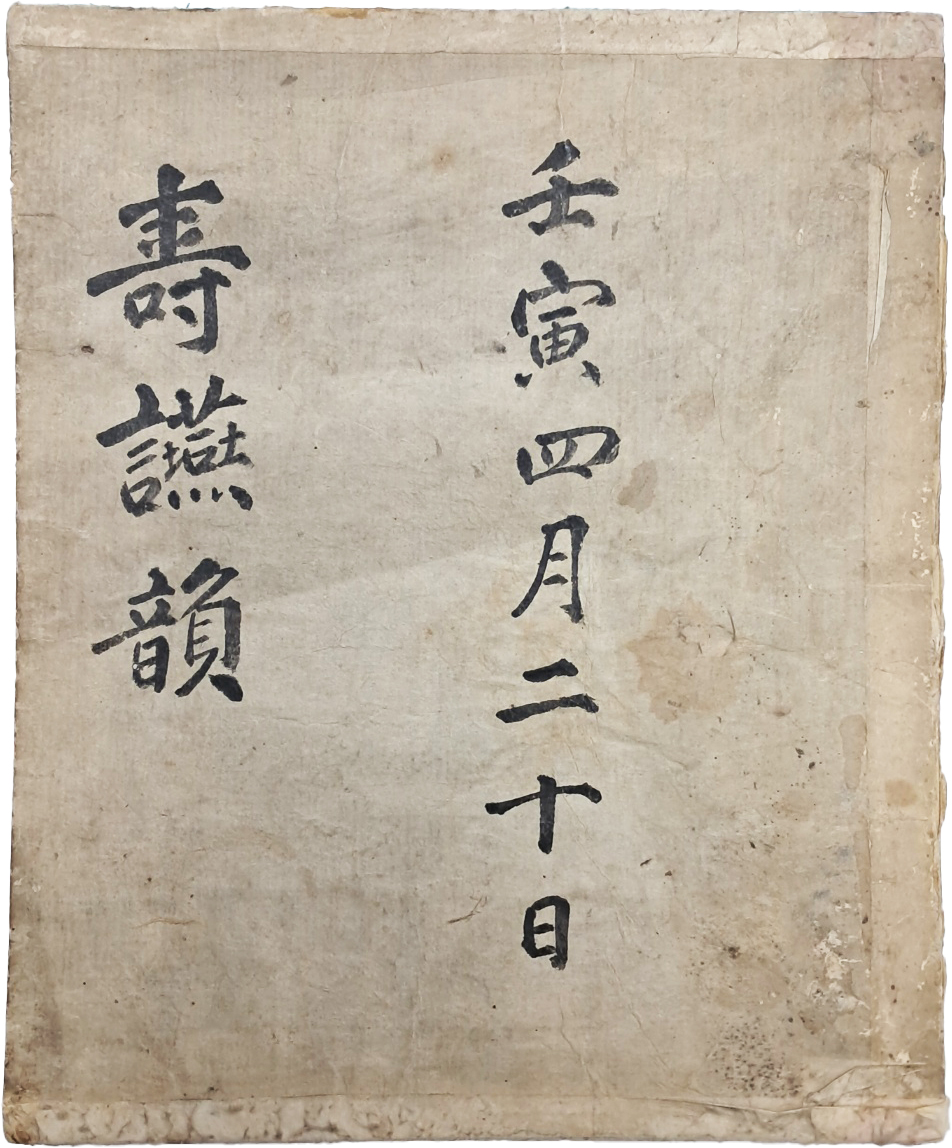 壬寅四月二十日
壽讌韻